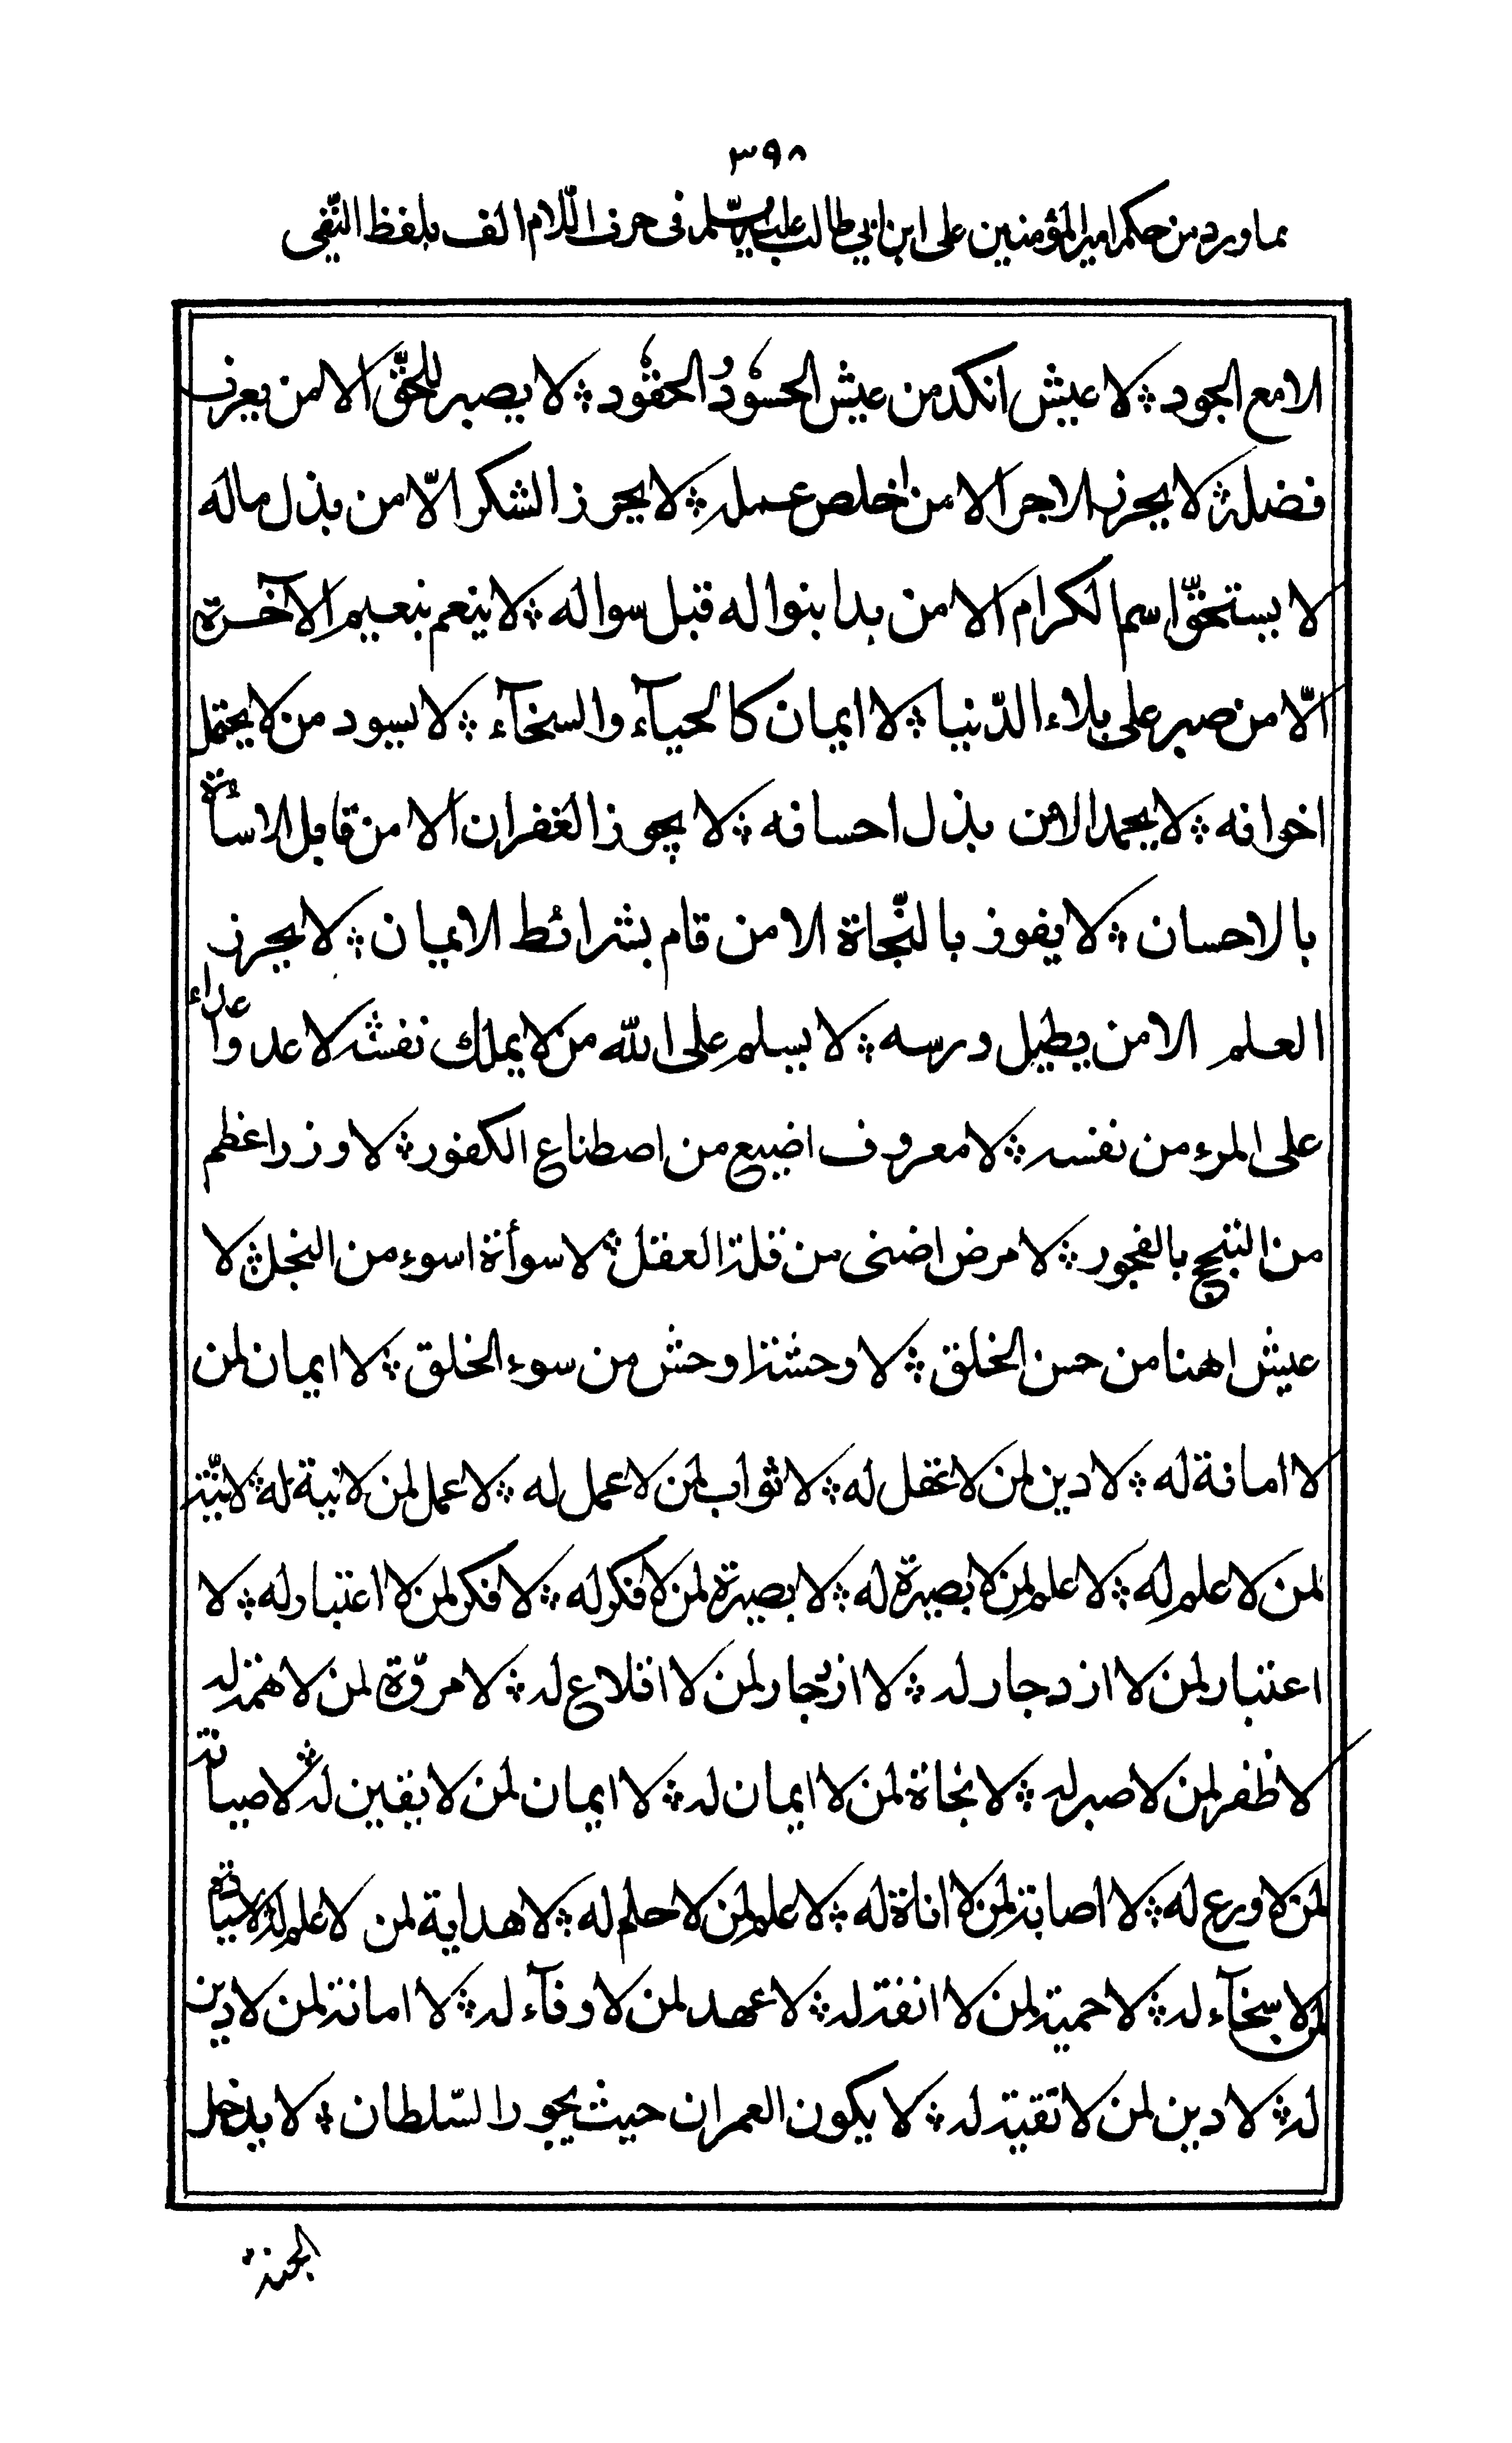 ٣٩٨
مما ورد من حكم امير المؤمنين على ابن ابي طالب عليه السّلم فى حرف اللّام الف بلفظ النّفى
الا مع الجود ؞ لا عيش انكد من عيش الحسوْدُ الحقوْد ؞ لا يصبر للحقّ الا من يعرف
فضله ؞ لا يحرز الاجر الا من اخلص عمله ؞ لا يحرز الشكر الّا من بذل ماله
لا يستحقّ اسم الكرام الا من بدا بنواله قبل سواله ؞ لا ينعم بنعيم الآخرة
الّا من صبر على بلاء الدّنيا ؞ لا ايمان كالحيآء والسخآء ؞ لا يسود من لا يحتمل
اخوانه ؞ لا يحمد الا من بذل احسانه ؞ لا يجوز الغفران الا من قابل الاسائة
بالاحسان ؞ لا يفوز بالنّجاة الا من قام بشرائط الايمان ؞ لا يحرز
العلم الا من يطيل درسه ؞ لا يسلم على الله من لا يملك نفسه ؞ لا عدوّ اعداء
على المرء من نفسه ؞ لا معروف اضيع من اصطناع الكفور ؞ لا وزر اعظم
من التبجح بالفجور ؞ لا مرض اضنى من قلة العقل ؞ لا سوأة اسوء من البخل ؞ لا
عيش اهنا من حسن الخلق ؞ لا وحشة اوحش من سوء الخلق ؞ لا ايمان لمن
لا امانة له ؞ لا دين لمن لا عقل له ؞ لا ثواب لمن لا عمل له ؞ لا عمل لمن لا نية له ؞ لا نيّة
لمن لا علم له ؞ لا علم لمن لا بصيرة له ؞ لا بصيرة لمن لا فكر له ؞ لا فكر لمن لا اعتبار له ؞ لا
اعتبار لمن لا ازدجار له ؞ لا ازدجار لمن لا اقلاع له ؞ لا مروّة لمن لا همة له
لا ظفر لمن لا صبر له ؞ لا نجاة لمن لا ايمان له ؞ لا ايمان لمن لا يقين له ؞ لا صيانة
لمن لا ورع له ؞ لا اصابة لمن لا اناة له ؞ لا علم لمن لا حلم له ؞ لا هداية لمن لا علم له ؞ لا سيادة
لمن لا سخآء له ؞ لا حمية لمن لا انفة له ؞ لا عهد لمن لا وفآء له ؞ لا امانة لمن لا دين
له ؞ لا دين لمن لا تقية له ؞ لا يكون العمران حيث يجور السّلطان ؞ لا يدخل
الجنة